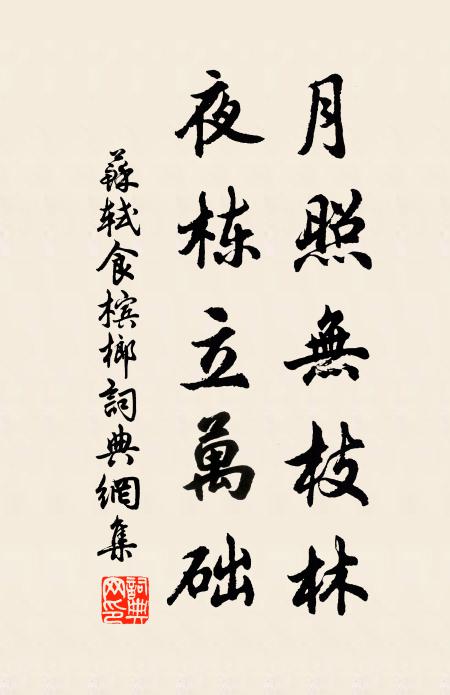 月照無枝林
夜栋立萬础
蘇轼食槟榔詞典網集
詞典网印